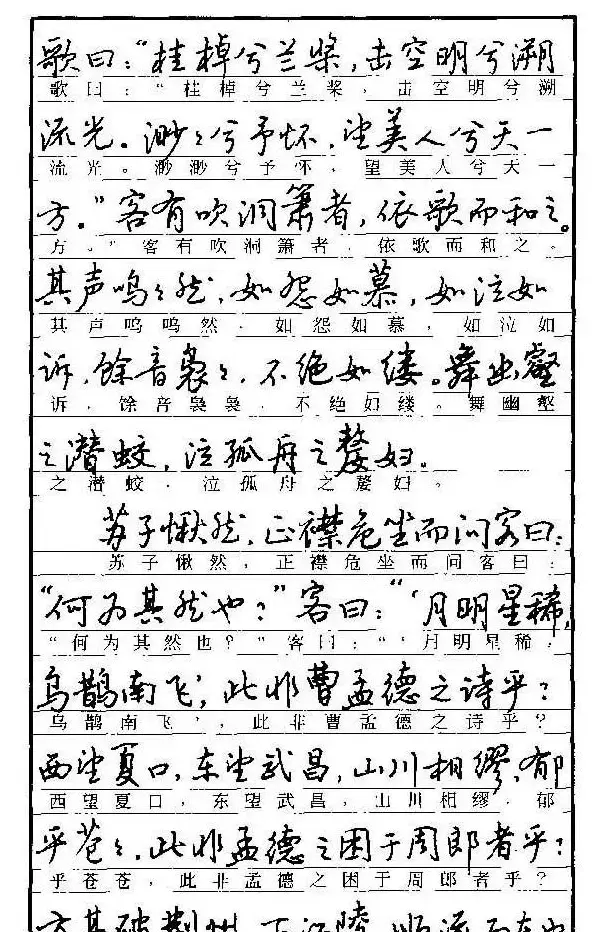 歌曰：“桂棹兮兰桨，击空明兮溯
歌曰：“桂棹兮兰桨，击空明兮溯
流光。渺々兮予怀，望美人兮天一
流光。渺渺兮予怀，望美人兮天一
方。”客有吹洞箫者，依歌而和之。
方。”客有吹洞箫者，依歌而和之。
其声呜々然，如怨如慕，如泣如
其声呜呜然，如怨如慕，如泣如
诉，馀音袅々，不绝如缕。舞幽壑
诉，馀音袅袅，不绝如缕。舞幽壑
之潜蛟，泣孤舟之嫠妇。
之潜蛟，泣孤舟之嫠妇。
苏子愀然，正襟危坐而问客曰：
苏子愀然，正襟危坐而问客曰：
“何为其然也？”客曰：“‘月明星稀，
“何为其然也？”客曰：“‘月明星稀，
乌鹊南飞’，此非曹孟德之诗乎？
乌鹊南飞’，此非曹孟德之诗乎？
西望夏口，东望武昌，山川相缪，郁
西望夏口，东望武昌，山川相缪，郁
乎苍々，此非孟德之困于周郎者乎？
乎苍苍，此非孟德之困于周郎者乎？
方其破荆州，下江陵，顺流而东也